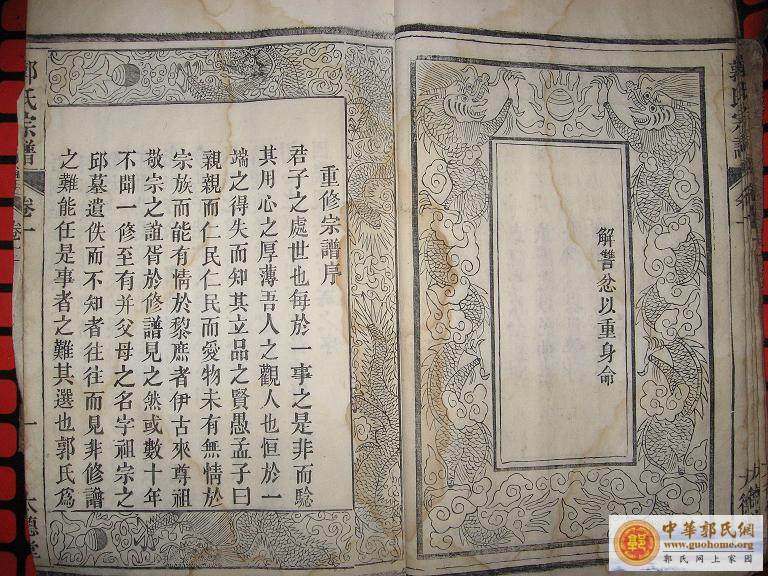 解讐忿以重身命
重修宗譜序
君子之處世也每於一事之是非而騐
其用心之厚薄吾人之觀人也恒於一
端之得失而知其立品之賢愚孟子曰
親親而仁民仁民而愛物未有無情於
宗族而能有情於黎庶者伊古來尊祖
敬宗之誼胥於修譜見之然或數十年
不聞一修至有并父母之名字祖宗之
邱墓遺佚而不知者往往而見非修譜
之難能任是事者之難其選也郭氏為
郭氏宗譜
卷一
一
中華郭氏網
www.guohome.org
郭氏网上家园